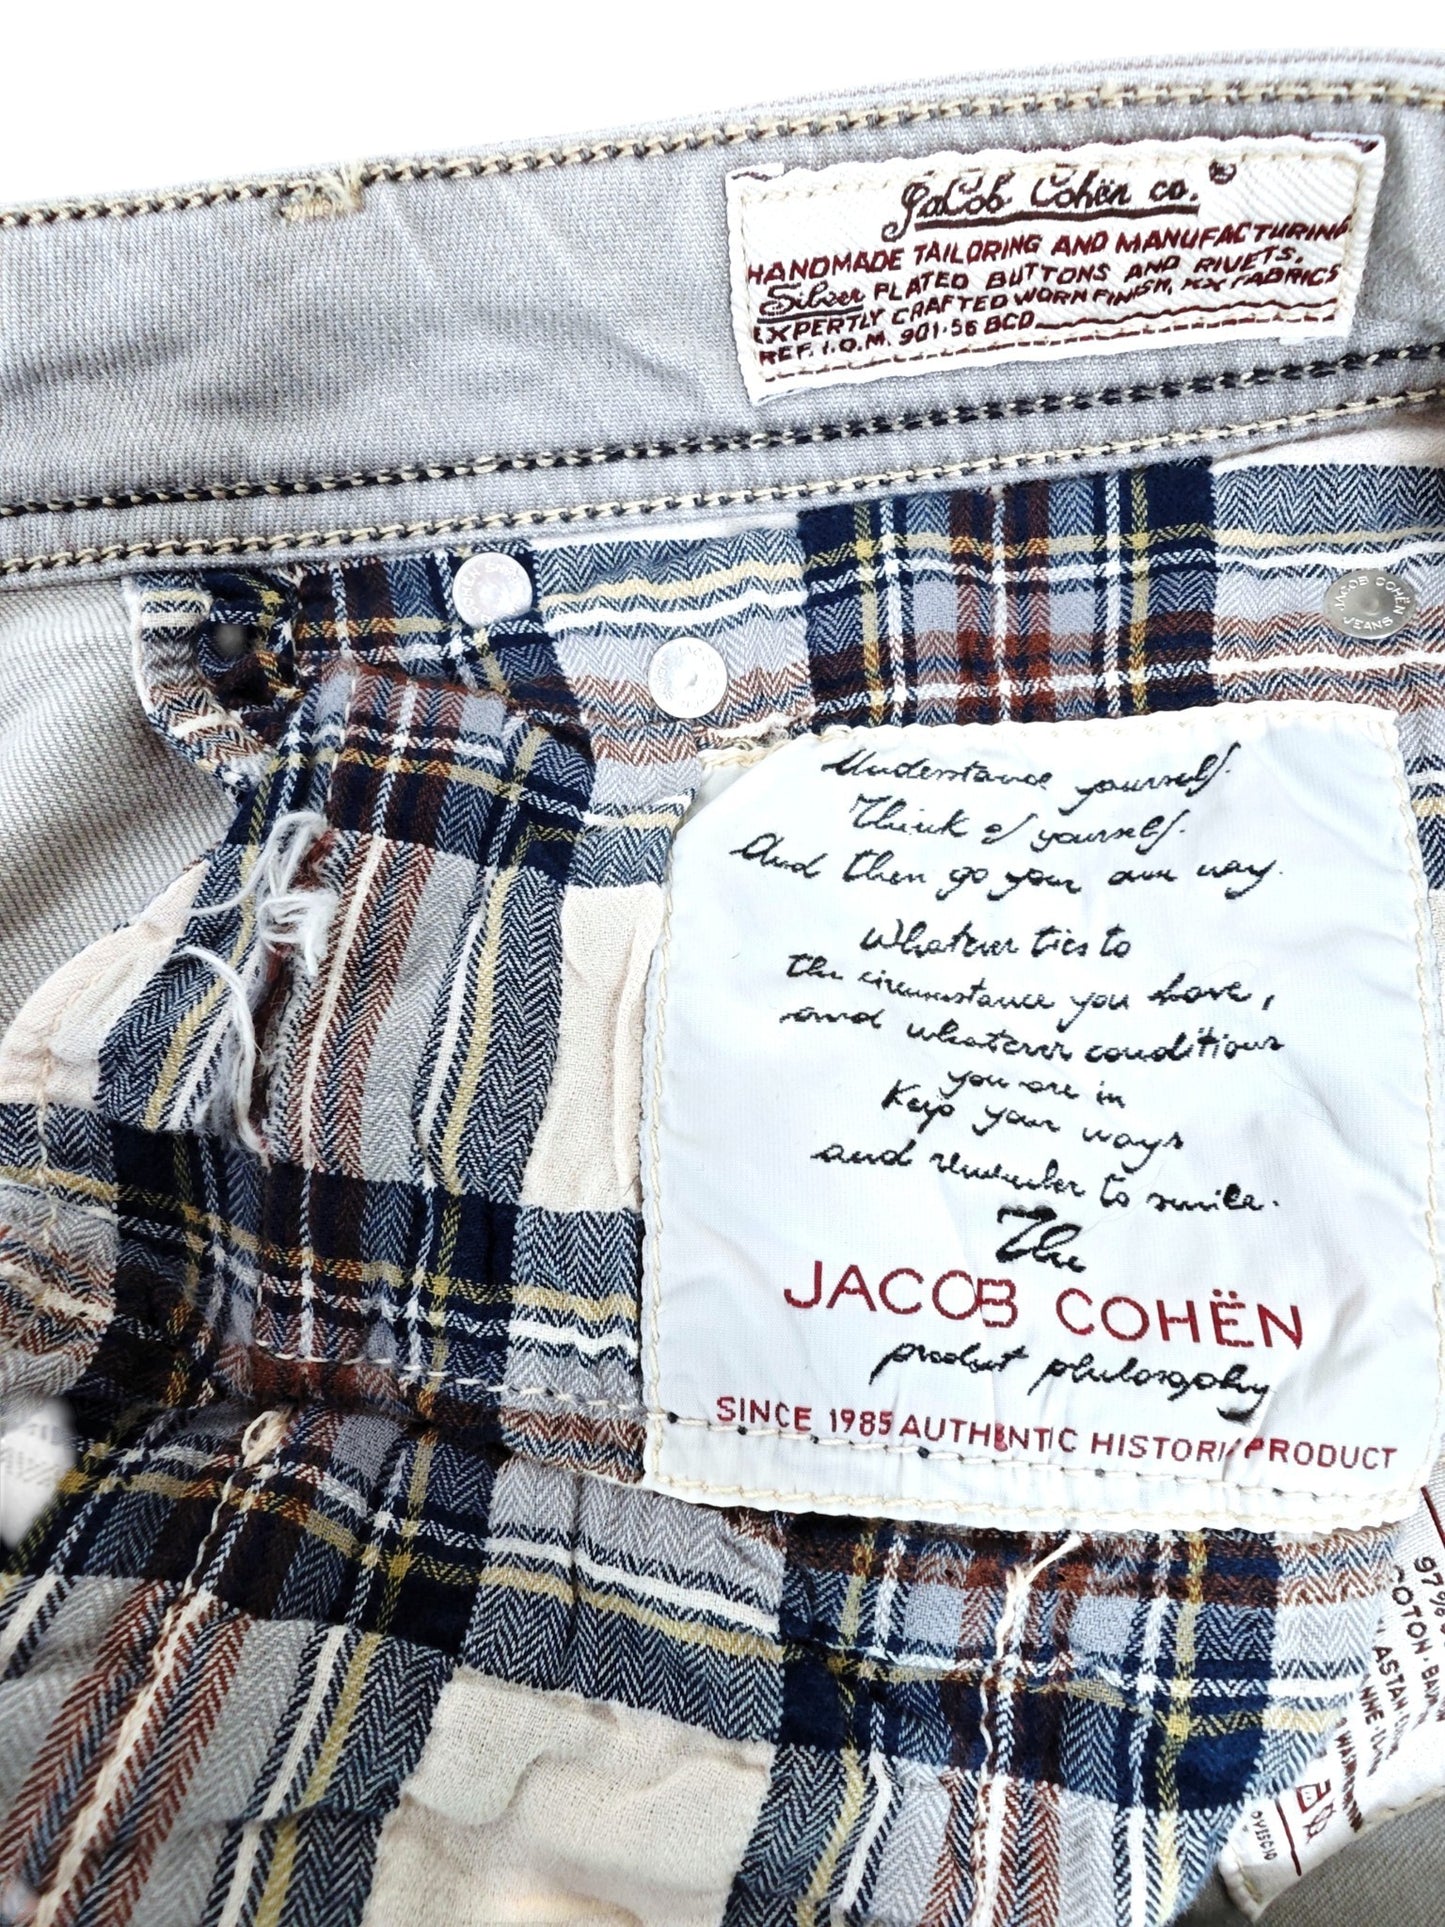 JaCob Cohën co.®
HANDMADE TAILORING AND MANUFACTURING
Silver PLATED BUTTONS AND RIVETS.
EXPERTLY CRAFTED WORN FINISH, XX FABRICS
REF. I.O.M. 901-56 BCD
JACOB COHËN
JEANS
Understand yourself.
Think of yourself.
And then go your own way.
Whatever ties to
the circumstance you have,
and whatever conditions
you are in
Keep your ways
and remember to smile.
The
JACOB COHËN
product philosophy
SINCE 1985 AUTHENTIC HISTORIC PRODUCT
97%
COTON